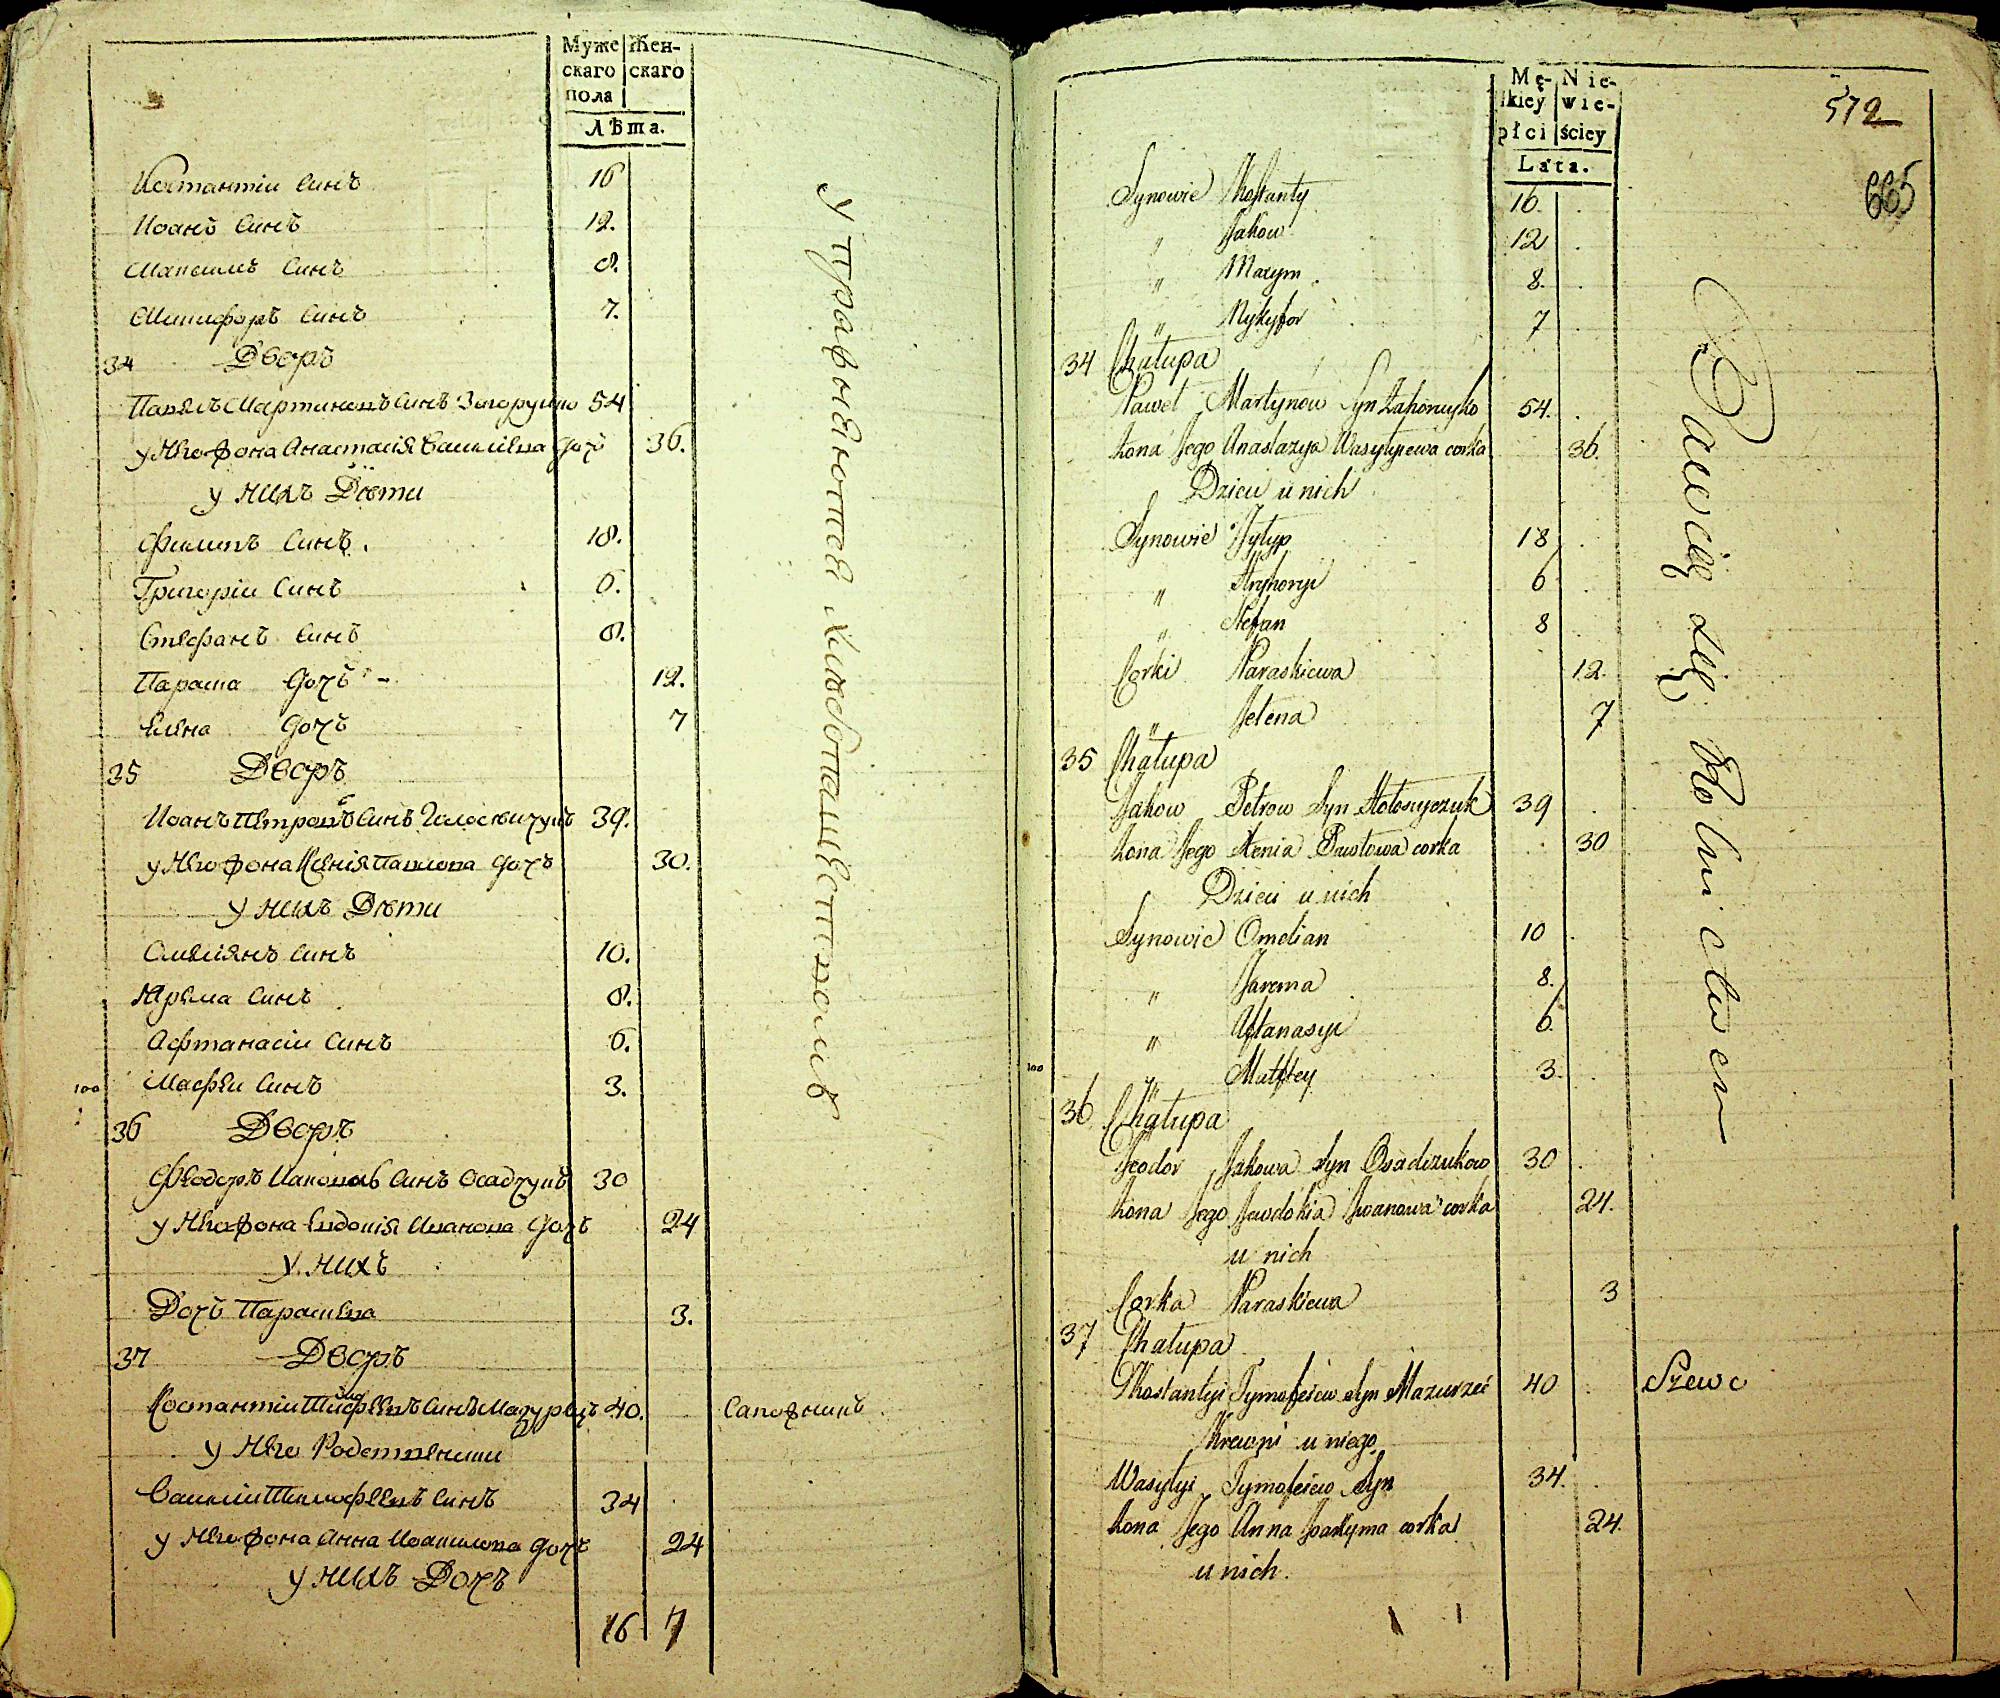 Муже Жен-
скаго скаго
пола
Лѣта.
Костантіи Синъ 16
Иоанъ Синъ 12.
Максимъ Синъ 8.
Никифоръ Синъ 7.
34 Дворъ
Павелъ Мартиновъ Синъ 54
у Него Жона Анастасія Василіева Дочъ 36.
у нихъ Дѣти
Филипъ Синъ. 18.
Григоріи Синъ 6.
Стефанъ Синъ 8.
Параска Дочъ 12.
Елена Дочъ 7
35 Дворъ
Иоанъ Петровъ Синъ 39.
у Него Жона Ксенія Павлова Дочъ 30.
у нихъ Дѣти
Омеліянъ Синъ 10.
Ярема Синъ 8.
Афтанасіи Синъ 6.
100 Мафеи Синъ 3.
36 Дворъ
Феодоръ Иаковлъ Синъ Осадчукъ 30
у Него Жона Евдокія Иванова Дочъ 24
у нихъ
Дочъ Парасковия 3.
37 Дворъ
Костантіи Тимофеевъ Синъ Мазурецъ 40. Сапожникъ
у Него Родственики
Василіи Тимофеевъ Синъ 34
у Него Жона Анна Дочъ 24
у нихъ Дочъ
16 7
упражняются хлебопашествомъ
Mę- Nie-
skiey wie-
płci ściey
Lata.
572
665
Synowie Kostanty 16.
" Jakow 12
" Maxym 8.
" Nykyfor 7
34 Chałupa
Paweł Martynow Syn Zahoruyko 54.
Żona Jego Anastazya Wasylyiewa corka 36.
Dzieci u nich
Synowie Fylyp 18
" Hryhoryi 6
" Stefan 8
Corki Paraskiewa 12.
" Jelena 7
35 Chałupa
Jakow Petrow Syn Hołosyczuk 39
Żona Jego Xenia Pawłowa corka 30
Dzieci u nich
Synowie Omelian 10
" Jarema 8.
" Aftanasyi 6.
100 " Matftey 3.
36 Chałupa
Feodor Jakowa Syn Osadczukow 30
Żona Jego Jewdokia Iwanowa corka 24.
u nich
Corka Paraskiewa 3
37 Chałupa
Kostantyi Tymofeiew Syn Mazurzec 40 Szewc
Krewni u niego
Wasylyi Tymofeiew Syn 34.
Żona Jego Anna Joakyma corka 24.
u nich.
Bawią się Rolnictwem